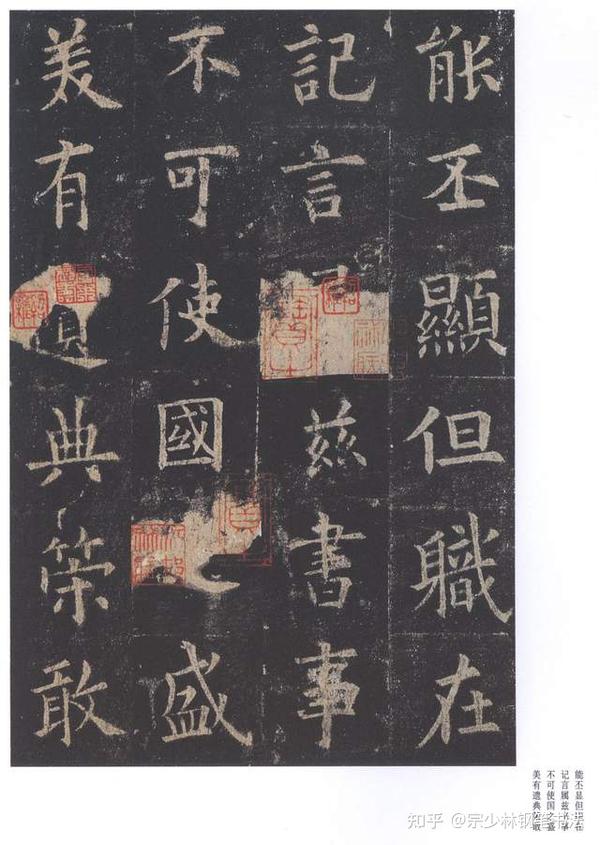 能丕顯但職在
記言兹書事
不可使國之盛
美有遺典策敢
能丕显但职在
记言属兹书事
不可使国之盛
美有遗典策敢
知乎 @宗少林钢笔书法